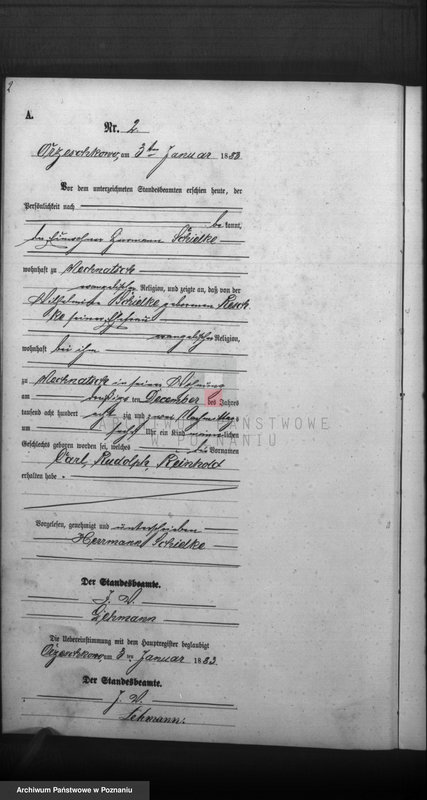 2
A.
Nr. 2.
Orzeschkowo, am 3ten Januar 1883
Vor dem unterzeichneten Standesbeamten erschien heute, der
Persönlichkeit nach
be kannt,
Hermann Schielke
wohnhaft zu Mechnatsch
evangelischer Religion, und zeigte an, daß von der
Wilhelmine Schielke geborenen Resch
ke seiner Ehefrau
evangelischer Religion,
wohnhaft bei ihm
zu Mechnatsch in seiner Wohnung
am ten December des Jahres
tausend acht hundert acht zig und zwei Nachmittags
um sechs Uhr ein Kind männlichen
Geschlechts geboren worden sei, welches die Vornamen
Carl, Rudolph, Reinhold
erhalten habe.
Vorgelesen, genehmigt und unterschrieben
Herrmann Schielke
Der Standesbeamte.
J. V.
Lehmann
Die Uebereinstimmung mit dem Hauptregister beglaubigt
Orzeschkowo, am 3 ten Januar 1883.
Der Standesbeamte.
J. V.
Lehmann.
ARCHIWUM PAŃSTWOWE
W POZNANIU
Archiwum Państwowe w Poznaniu